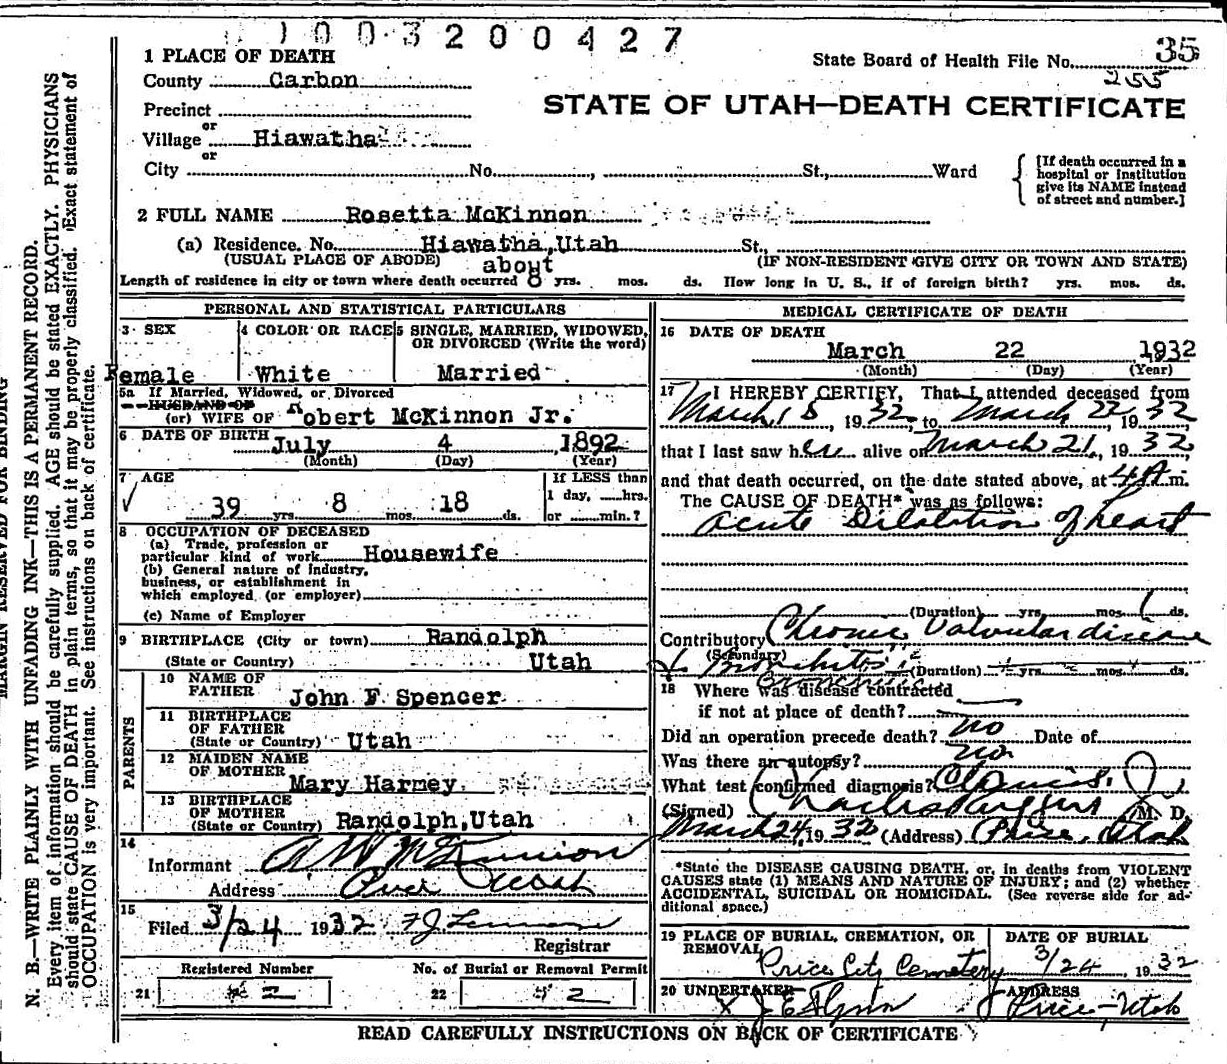 1003200427
State Board of Health File No. 35
255
1 PLACE OF DEATH
County Carbon
STATE OF UTAH—DEATH CERTIFICATE
Precinct
or
Village Hiawatha
or
City No. , St., Ward
[If death occurred in a
hospital or institution
give its NAME instead
of street and number.]
2 FULL NAME Rosetta McKinnon
(a) Residence. No. Hiawatha, Utah St.,
(USUAL PLACE OF ABODE) (IF NON-RESIDENT GIVE CITY OR TOWN AND STATE)
about
Length of residence in city or town where death occurred 8 yrs. mos. ds. How long in U. S., if of foreign birth? yrs. mos. ds.
PERSONAL AND STATISTICAL PARTICULARS
3 SEX 4 COLOR OR RACE 5 SINGLE, MARRIED, WIDOWED,
OR DIVORCED (Write the word)
Female White Married
5a If Married, Widowed, or Divorced
HUSBAND OF
(or) WIFE OF Robert McKinnon Jr.
6 DATE OF BIRTH July 4 1892
(Month) (Day) (Year)
7 AGE If LESS than
1 day, hrs.
39 yrs 8 mos. 18 ds. or min.?
8 OCCUPATION OF DECEASED
(a) Trade, profession or
particular kind of work Housewife
(b) General nature of industry,
business, or establishment in
which employed (or employer)
(c) Name of Employer
9 BIRTHPLACE (City or town) Randolph
(State or Country) Utah
PARENTS
10 NAME OF
FATHER John F Spencer
11 BIRTHPLACE
OF FATHER
(State or Country) Utah
12 MAIDEN NAME
OF MOTHER Mary Harney
13 BIRTHPLACE
OF MOTHER
(State or Country) Randolph, Utah
14
Informant A W McKinnon
Address Utah
15
Filed 3/24 1932
Registrar
Registered Number No. of Burial or Removal Permit
21 2 22 2
MEDICAL CERTIFICATE OF DEATH
16 DATE OF DEATH
March 22 1932
(Month) (Day) (Year)
17 I HEREBY CERTIFY, That I attended deceased from
March 18, 1932, to March 22, 1932
that I last saw her alive on March 21, 1932,
and that death occurred, on the date stated above, at 4 A m.
The CAUSE OF DEATH* was as follows:
Acute Dilatation of heart
(Duration) yrs. mos. 1 ds.
Contributory Chronic Valvular disease
(Secondary)
& Bronchitis (Duration) yrs. mos. ds.
18 Where was disease contracted
if not at place of death?
Did an operation precede death? no Date of
Was there an autopsy? no
What test confirmed diagnosis?
(Signed) Charles Ruggeri M. D.
March 24, 1932 (Address) Price, Utah
*State the DISEASE CAUSING DEATH, or, in deaths from VIOLENT
CAUSES state (1) MEANS AND NATURE OF INJURY; and (2) whether
ACCIDENTAL, SUICIDAL OR HOMICIDAL. (See reverse side for ad-
ditional space.)
19 PLACE OF BURIAL, CREMATION, OR
REMOVAL DATE OF BURIAL
Price City Cemetery 3/24, 1932
20 UNDERTAKER ADDRESS
J E Flynn Price—Utah
READ CAREFULLY INSTRUCTIONS ON BACK OF CERTIFICATE
MARGIN RESERVED FOR BINDING
N. B.—WRITE PLAINLY WITH UNFADING INK—THIS IS A PERMANENT RECORD.
Every item of information should be carefully supplied. AGE should be stated EXACTLY. PHYSICIANS
should state CAUSE OF DEATH in plain terms, so that it may be properly classified. Exact statement of
OCCUPATION is very important. See instructions on back of certificate.